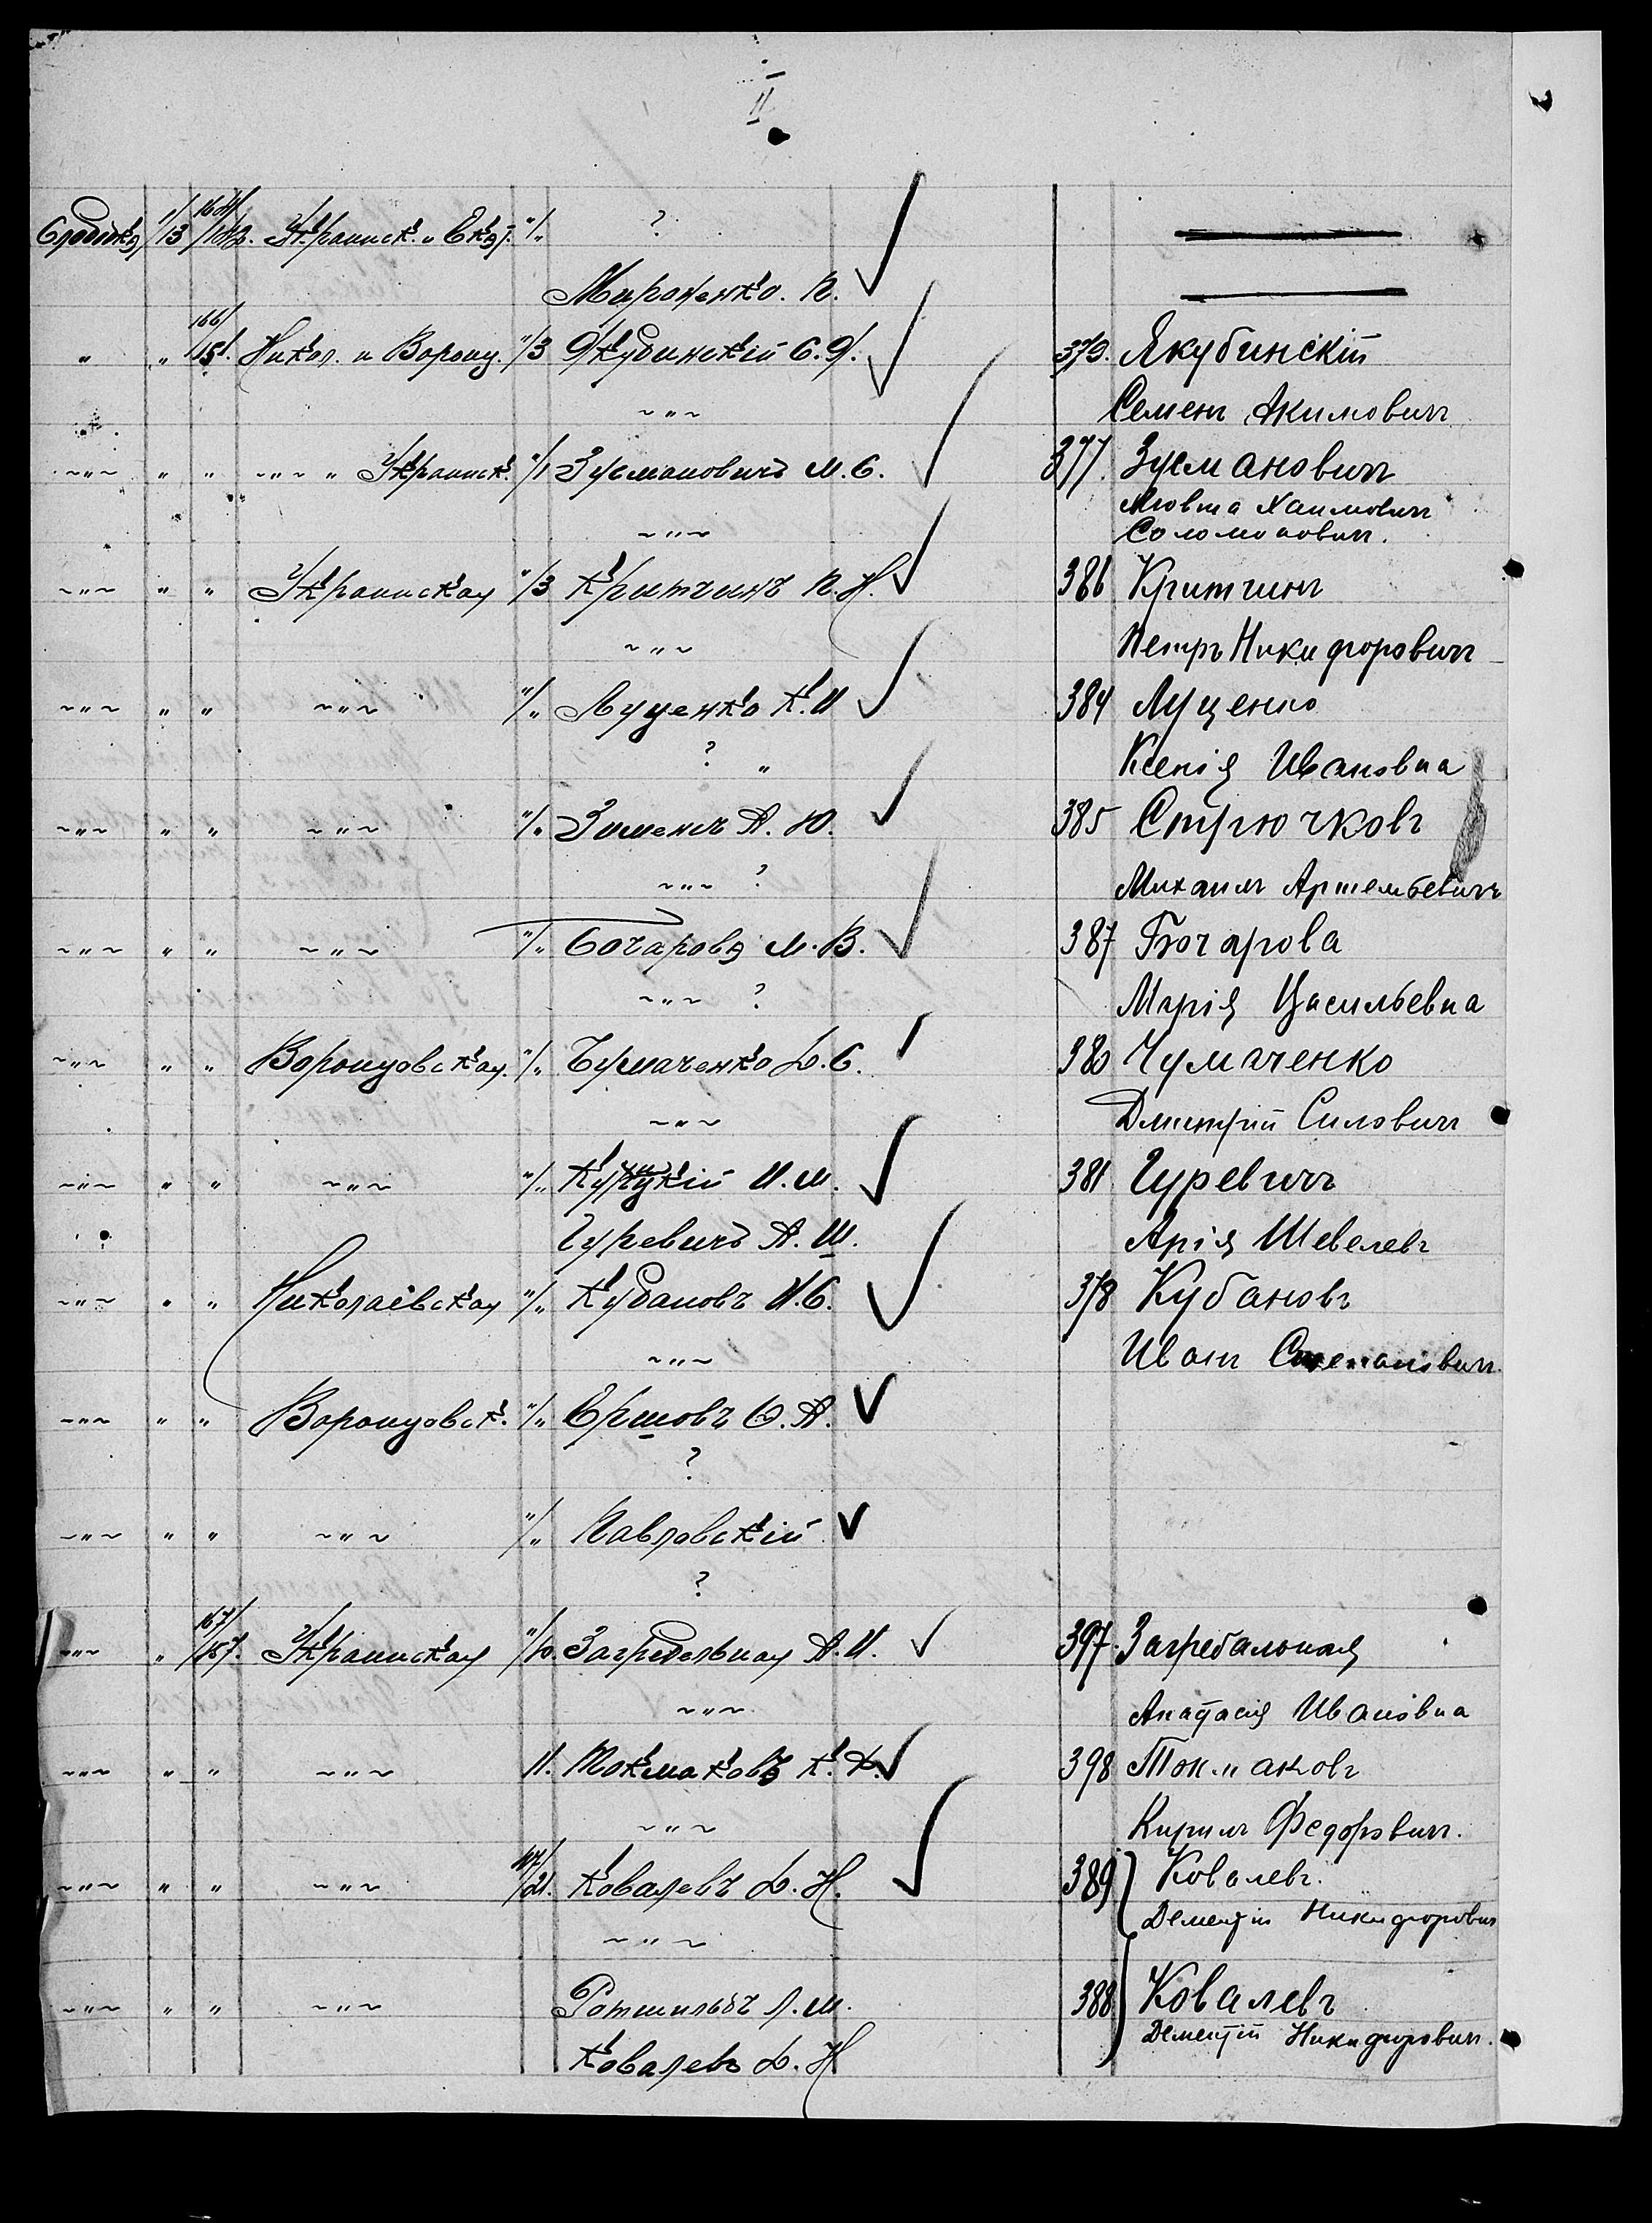 II
Слободка 1/13 164/162. Украинск. и Екат. "/" ?
Мироненко. П.
" " 166/151. Никол. и Воронц. "/3 Якубинскій С. Я. 379. Якубинскій
~"~ Семенъ Акимовичъ
~"~ " " ~"~ " Украинск. "/1 Зусмановичъ М. С. 377. Зусмановичъ
Мовша Хаимовичъ
~"~ Соломоновичъ.
~"~ " " Украинская "/3 Критчинъ П. Н. 386 Критчинъ
~"~ Петръ Никифоровичъ
~"~ " " ~"~ "/" Луценко К. И 384 Луценко
? " Ксенія Ивановна
~"~ " " ~"~ "/" Зименъ А. Ю. 385 Стрючковъ
~"~ ? Михаилъ Артемьевичъ
~"~ " " ~"~ "/" Бочарова М. В. 387 Бочарова
~"~ ? Марія Васильевна
~"~ " " Воронцовская. "/" Чумаченко Д. С. 380 Чумаченко
~"~ Дмитрій Силовичъ
~"~ " " ~"~ "/" И. М. 381 Гуревичъ
Гуревичъ А. Ш. Арія Шевелевъ
~"~ " " Николаевская "/" Кубановъ И. С. 378 Кубановъ
~"~ Иванъ Степановичъ.
~"~ " " Воронцовск. "/" Ершовъ Ѳ. А.
?
~"~ " " ~"~ "/" Павловскій
?
~"~ " 167/157. Украинская "/10. Загребельная А. И. 397. Загребальная
~"~ Анастасія Ивановна
~"~ " " ~"~ 11. Токмаковъ К. Ф. 398 Токмаковъ
~"~ Кирилъ Федоровичъ.
~"~ " " ~"~ 107/21. Ковалевъ Д. Н. 389 Ковалевъ.
~"~ Дементій Никифоровичъ
~"~ " " ~"~ Ротшильдъ Л. М. 388 Ковалевъ
Ковалевъ Д. Н Дементій Никифоровичъ.